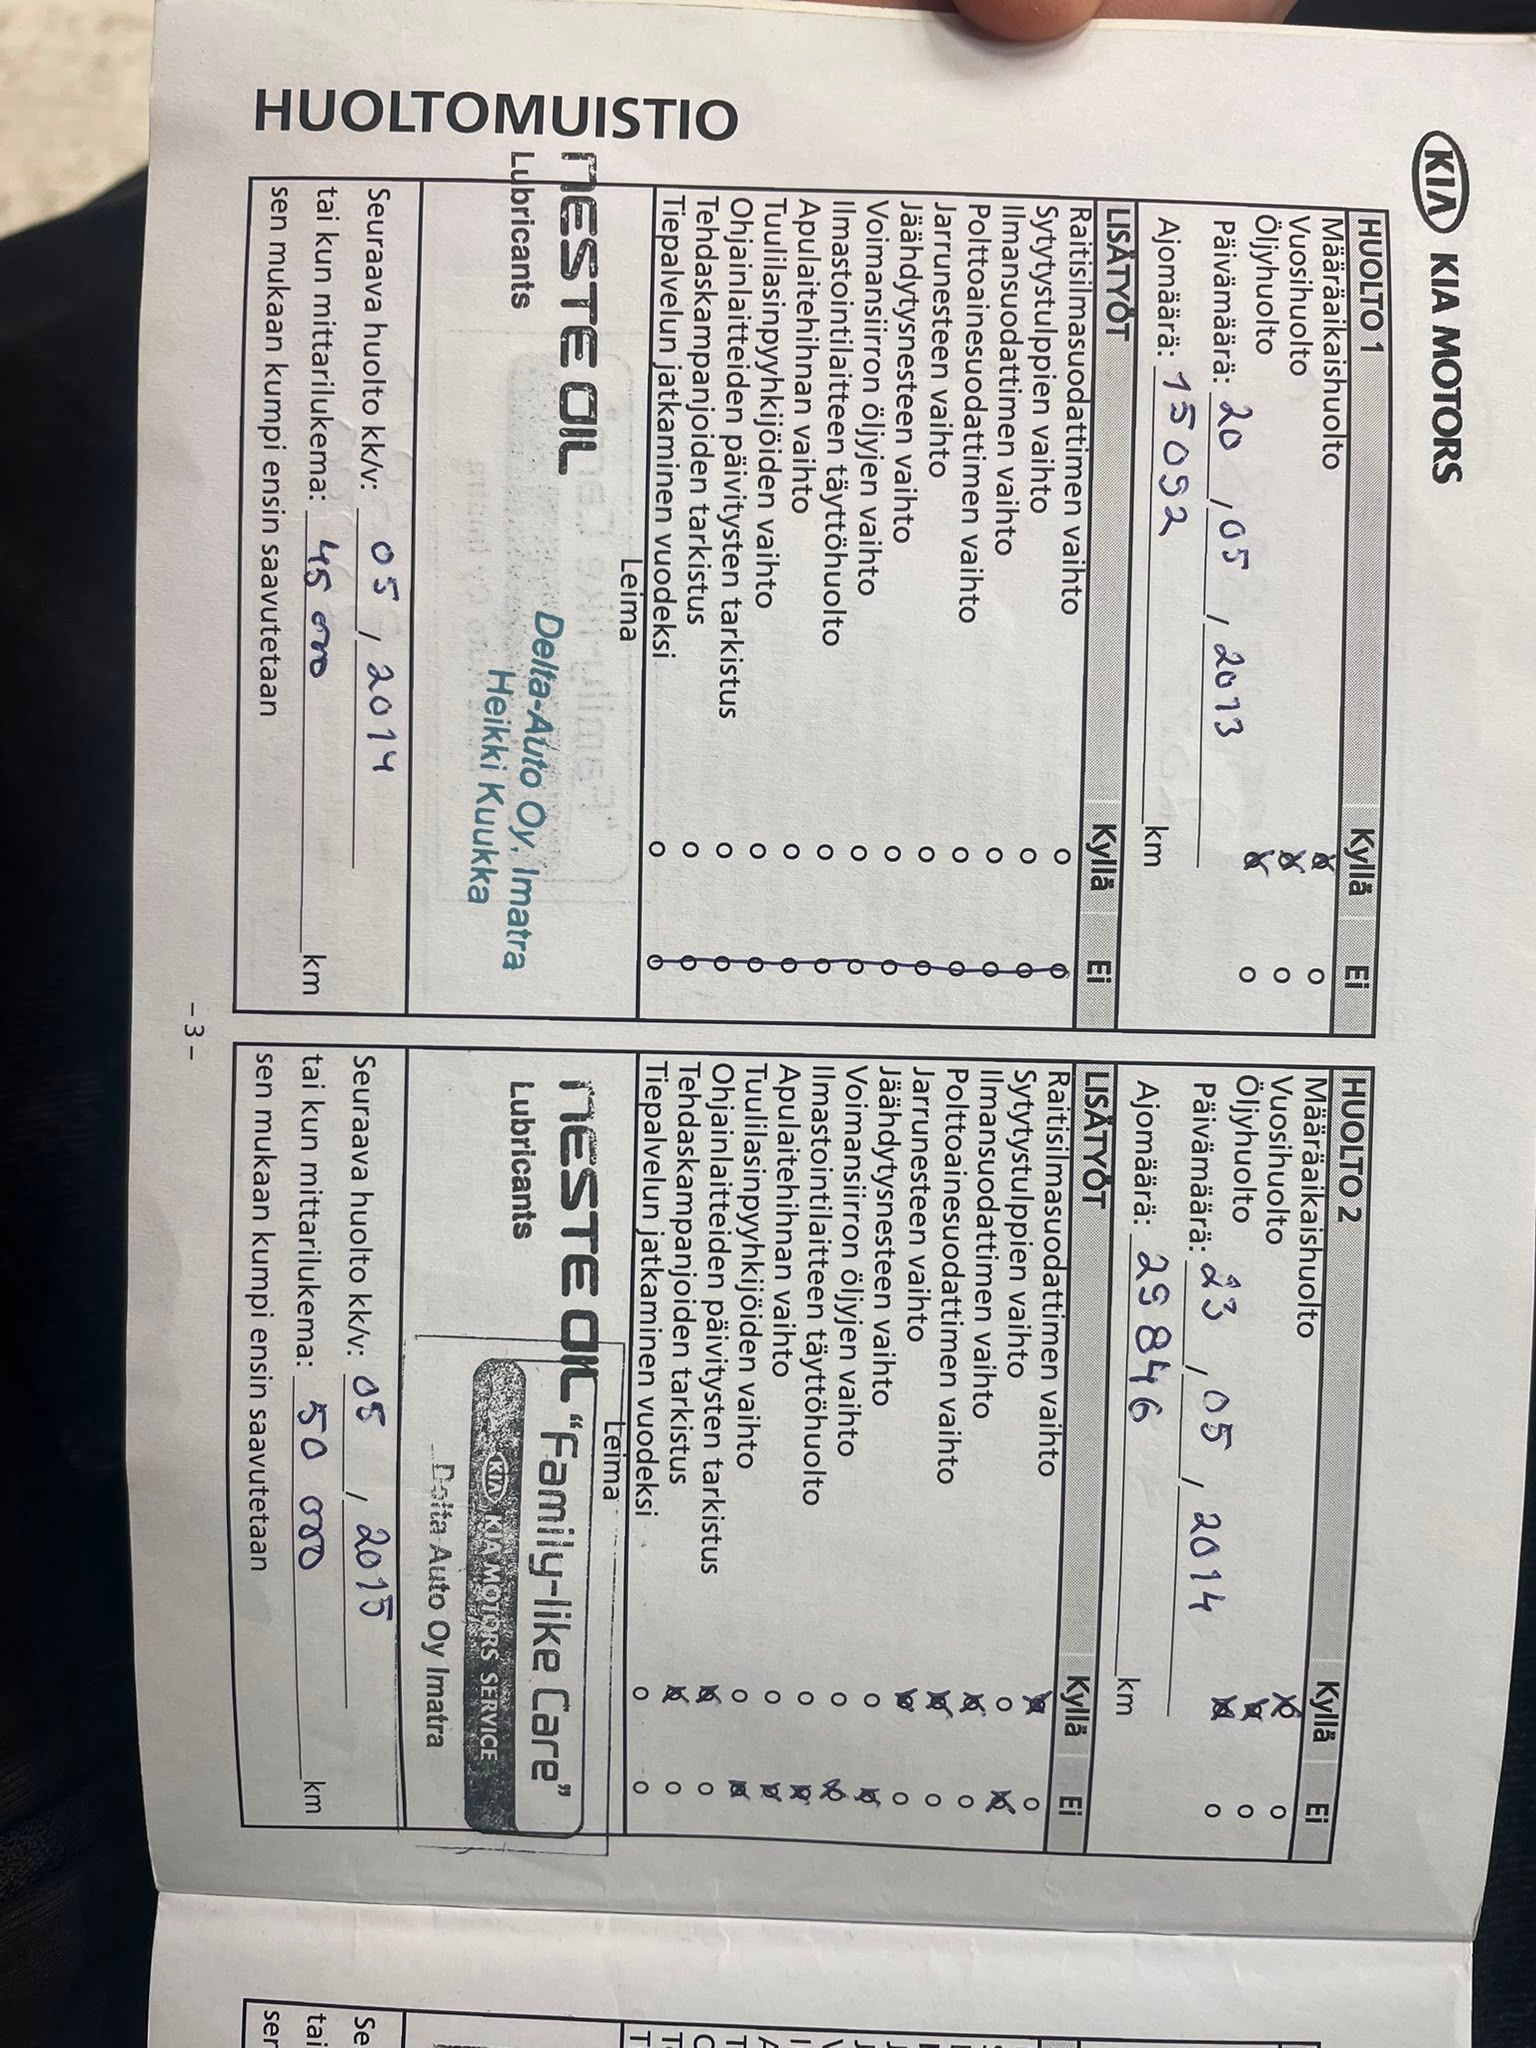 KIA KIA MOTORS
HUOLTOMUISTIO
HUOLTO 1 Kyllä Ei
Määräaikaishuolto
Vuosihuolto
Öljyhuolto
Päivämäärä: 20 / 05 / 2013
Ajomäärä: 15092 km
LISÄTYÖT Kyllä Ei
Raitisilmasuodattimen vaihto
Sytytystulppien vaihto
Ilmansuodattimen vaihto
Polttoainesuodattimen vaihto
Jarrunesteen vaihto
Jäähdytysnesteen vaihto
Voimansiirron öljyjen vaihto
Ilmastointilaitteen täyttöhuolto
Apulaitehihnan vaihto
Tuulilasinpyyhkijöiden vaihto
Ohjainlaitteiden päivitysten tarkistus
Tehdaskampanjoiden tarkistus
Tiepalvelun jatkaminen vuodeksi
Leima
NESTE OIL
Lubricants
Delta-Auto Oy. Imatra
Heikki Kuukka
Seuraava huolto kk/v: 05 / 2014
tai kun mittarilukema: 45 000 km
sen mukaan kumpi ensin saavutetaan
HUOLTO 2 Kyllä Ei
Määräaikaishuolto
Vuosihuolto
Öljyhuolto
Päivämäärä: 23 / 05 / 2014
Ajomäärä: 29846 km
LISÄTYÖT Kyllä Ei
Raitisilmasuodattimen vaihto
Sytytystulppien vaihto
Ilmansuodattimen vaihto
Polttoainesuodattimen vaihto
Jarrunesteen vaihto
Jäähdytysnesteen vaihto
Voimansiirron öljyjen vaihto
Ilmastointilaitteen täyttöhuolto
Apulaitehihnan vaihto
Tuulilasinpyyhkijöiden vaihto
Ohjainlaitteiden päivitysten tarkistus
Tehdaskampanjoiden tarkistus
Tiepalvelun jatkaminen vuodeksi
Leima
NESTE OIL
Lubricants
"Family-like Care"
KIA KIA MOTORS SERVICE
Delta Auto Oy Imatra
Seuraava huolto kk/v: 05 / 2015
tai kun mittarilukema: 50 000 km
sen mukaan kumpi ensin saavutetaan
– 3 –